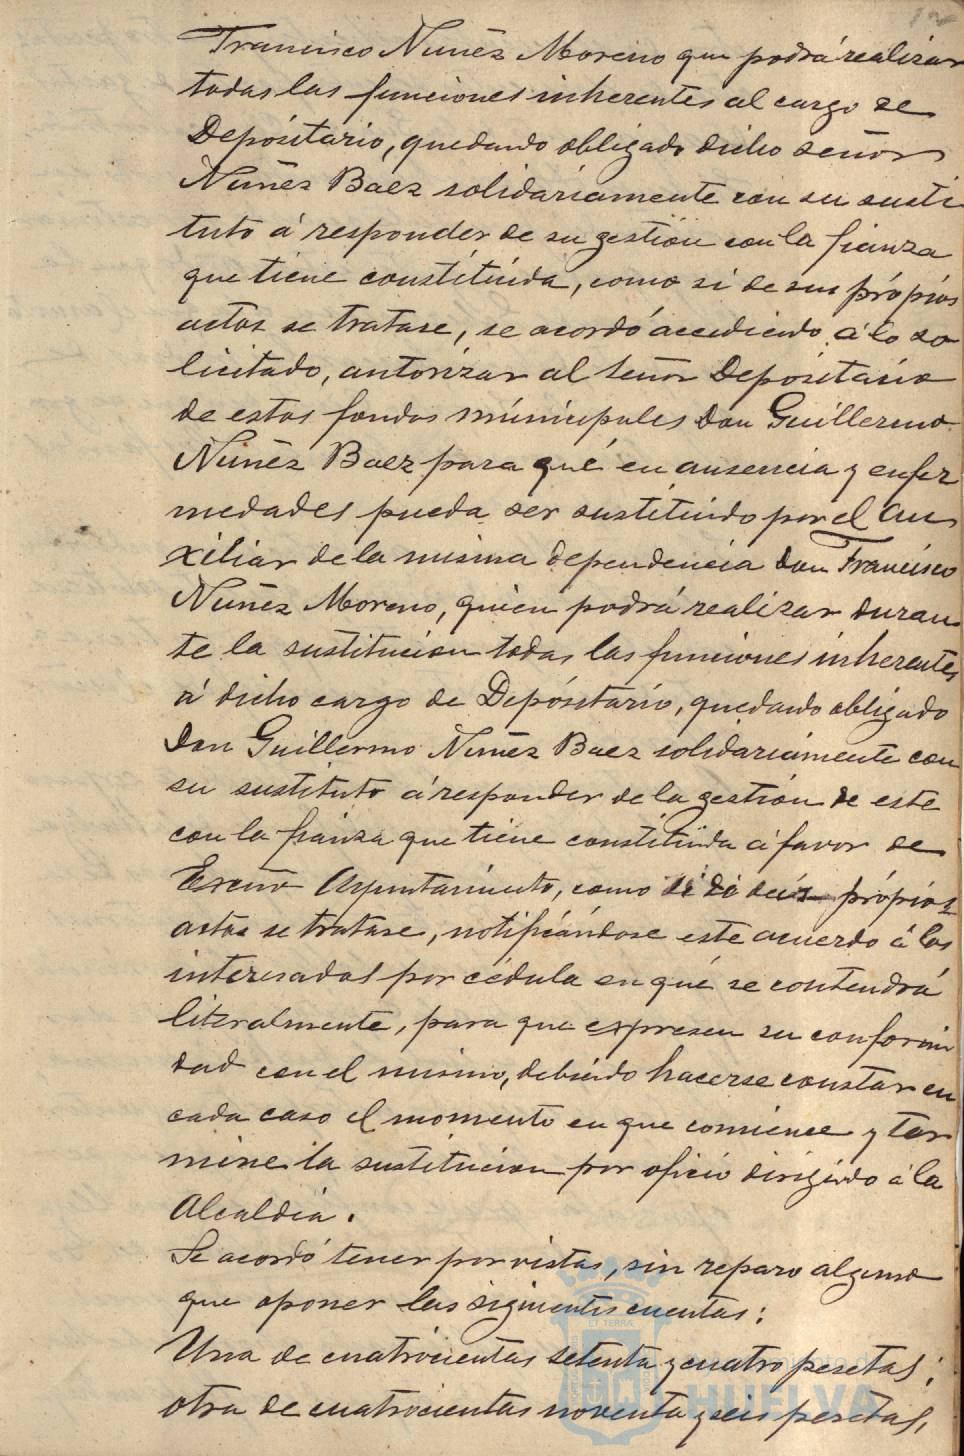 Francisco Nuñez Moreno que podrá realizar
todas las funciones inherentes al cargo de
Depósitario, quedando obligado dicho señor
Nuñez Baez solidariamente con su susti
tuto á responder de su gestion con la fianza
que tiene constitúida, como si de sus própios
actos se tratase, se acordó accediendo á lo so
licitado, autorizar al Señor Depósitario
de estos fondos múnicipales Don Guillermo
Nuñez Baez para qué en ausencia y enfer
medades pueda ser sustitúido por el Au
xiliar de la misma dependencia Don Francisco
Nuñez Moreno, quien podrá realizar duran
te la sustitucion todas las funciones inherentes
á dicho cargo de Depósitario, quedando obligado
Don Guillermo Nuñez Baez solidariamente con
su sustituto á responder de la gestión de este
con la fianza que tiene constitúida á favor de
Excmo Ayuntamiento, como si de própios
actos se tratase, notificándose este acuerdo á los
interesados por cédula en qué se contendrá
literalmente, para que expresen su conformi
dad con el mismo, debiendo hacerse constar en
cada caso el momento en que comience y ter
mine la sustitucion por oficio dirigido á la
Alcaldia.
Se acordó tener por vistas, sin reparo alguno
que oponer las siguientes cuentas:
Una de cuatrocientas setenta y cuatro pesetas;
otra de cuatrocientas noventa y seis pesetas,
ET TERRÆ
Ayuntamiento de
HUELVA